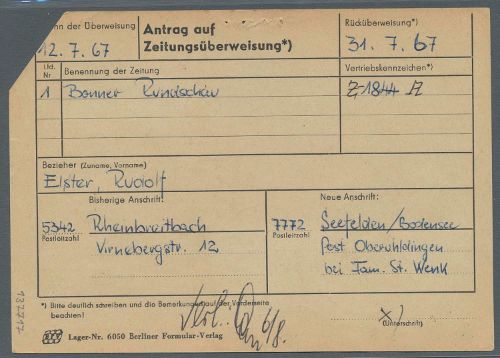 nn der Überweisung
12.7.67
Antrag auf
Zeitungsüberweisung*)
Rücküberweisung*)
31.7.67
Lfd.
Nr
Benennung der Zeitung
Vertriebskennzeichen*)
1 Bonner Rundschau
Z 1844 A
Bezieher (Zuname, Vorname)
Elster, Rudolf
Bisherige Anschrift:
5342 Rheinbreitbach
Postleitzahl
Virnebergstr. 12
Neue Anschrift:
7772 Seefelden/Bodensee
Postleitzahl
Post Oberuhldingen
bei Fam. St. Wenk
*) Bitte deutlich schreiben und die Bemerkungen auf der Vorderseite
beachten!
6/8.
x)
(Unterschrift)
Lager-Nr. 6050 Berliner Formular-Verlag
137717